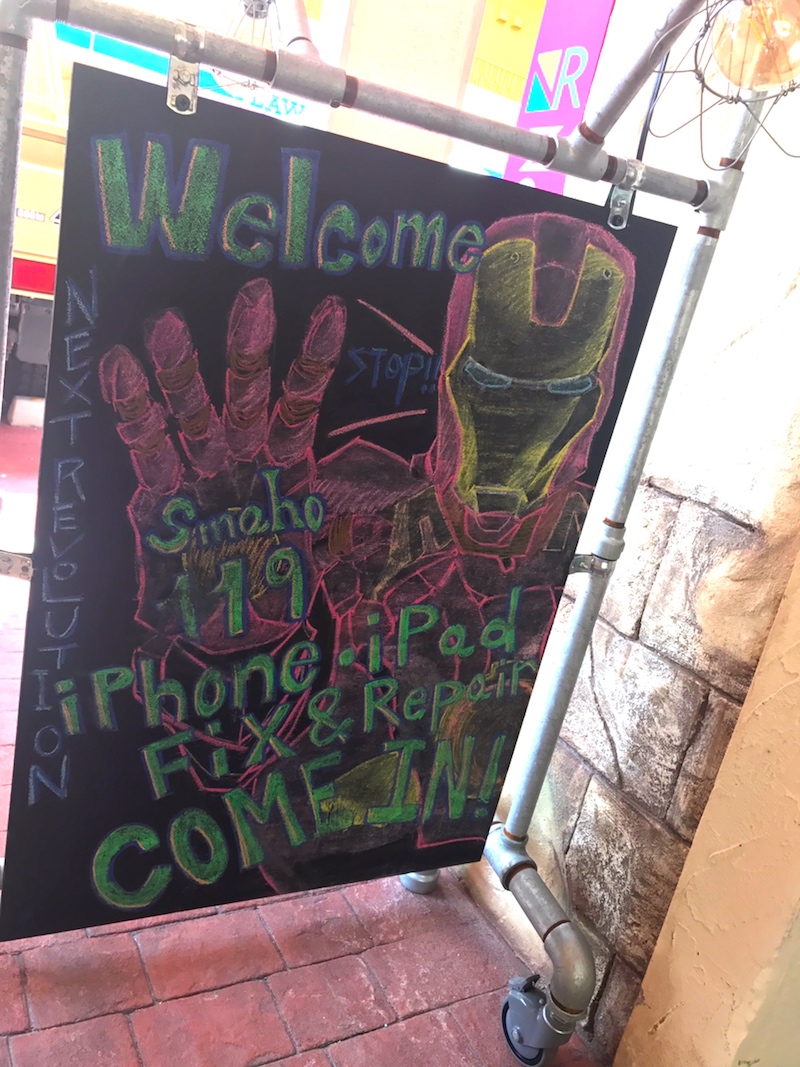 LAW
NR
Welcome
NEXT REVOLUTION
STOP!!
Smaho
119
iPhone・iPad
Fix & Repair
COME IN!